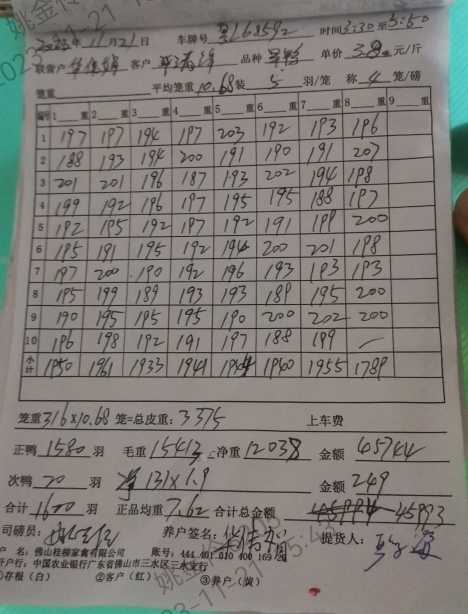 2023年11月21日 车牌号 时间3:30至5:50
联营户 客户 品种 单价3.8元/斤
笼重 平均笼重10.68装5羽/笼 称4笼/磅
编号 1 重 2 重 3 重 4 重 5 重 6 重 7 重 8 重 9 重
1 197 197 194 197 203 192 193 196
2 188 193 194 200 191 190 191 207
3 201 201 196 187 193 202 194 198
4 199 192 196 197 195 195 188 197
5 192 195 192 197 192 191 199 200
6 195 191 195 192 194 200 201 198
7 197 200 190 192 196 193 193 193
8 195 199 189 193 193 189 195 200
9 190 195 195 195 190 200 202 200
10 196 198 192 191 197 188 199 —
小计 1950 1961 1933 1941 1944 1940 1955 1789
笼重316×10.68 笼=总皮重:3375 上车费
正鸭1580羽 毛重15413 净重12038 金额45744
次鸭20羽 净131×1.9 金额249
合计1600羽 正品均重7.62 合计总金额 45993
司磅员: 养户签名: 提货人:
户 名:佛山桂柳家禽有限公司 账号:444 401 010 400 169
开户行:中国农业银行广东省佛山市三水区三水支行
①存根(白) ②客户(红) ③养户(黄)